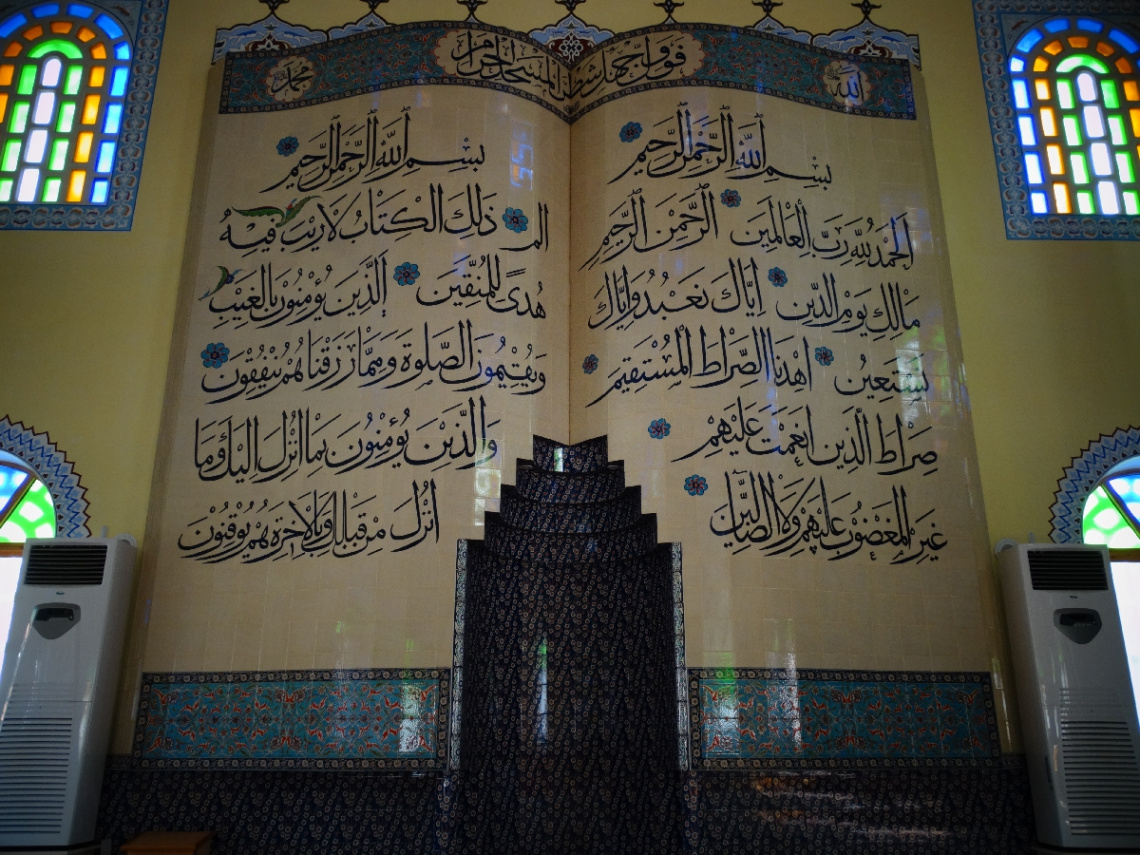 الله
فول وجهك شطر المسجد الحرام
محمد
بِسْمِ اللهِ الرَّحْمٰنِ الرَّحِيمِ
اَلْحَمْدُ لِلّٰهِ رَبِّ الْعَالَمِينَ الرَّحْمٰنِ الرَّحِيمِ
مَالِكِ يَوْمِ الدِّينِ اِيَّاكَ نَعْبُدُ وَاِيَّاكَ
نَسْتَعِينُ اِهْدِنَا الصِّرَاطَ الْمُسْتَقِيمَ
صِرَاطَ الَّذِينَ اَنْعَمْتَ عَلَيْهِمْ
غَيْرِ الْمَغْضُوبِ عَلَيْهِمْ وَلَا الضَّالِّينَ
بِسْمِ اللهِ الرَّحْمٰنِ الرَّحِيمِ
الم ذٰلِكَ الْكِتَابُ لَا رَيْبَ فِيهِ
هُدًى لِلْمُتَّقِينَ اَلَّذِينَ يُؤْمِنُونَ بِالْغَيْبِ
وَيُقِيمُونَ الصَّلٰوةَ وَمِمَّا رَزَقْنَاهُمْ يُنْفِقُونَ
وَالَّذِينَ يُؤْمِنُونَ بِمَا اُنْزِلَ اِلَيْكَ وَمَا
اُنْزِلَ مِنْ قَبْلِكَ وَبِالْاٰخِرَةِ هُمْ يُوقِنُونَ